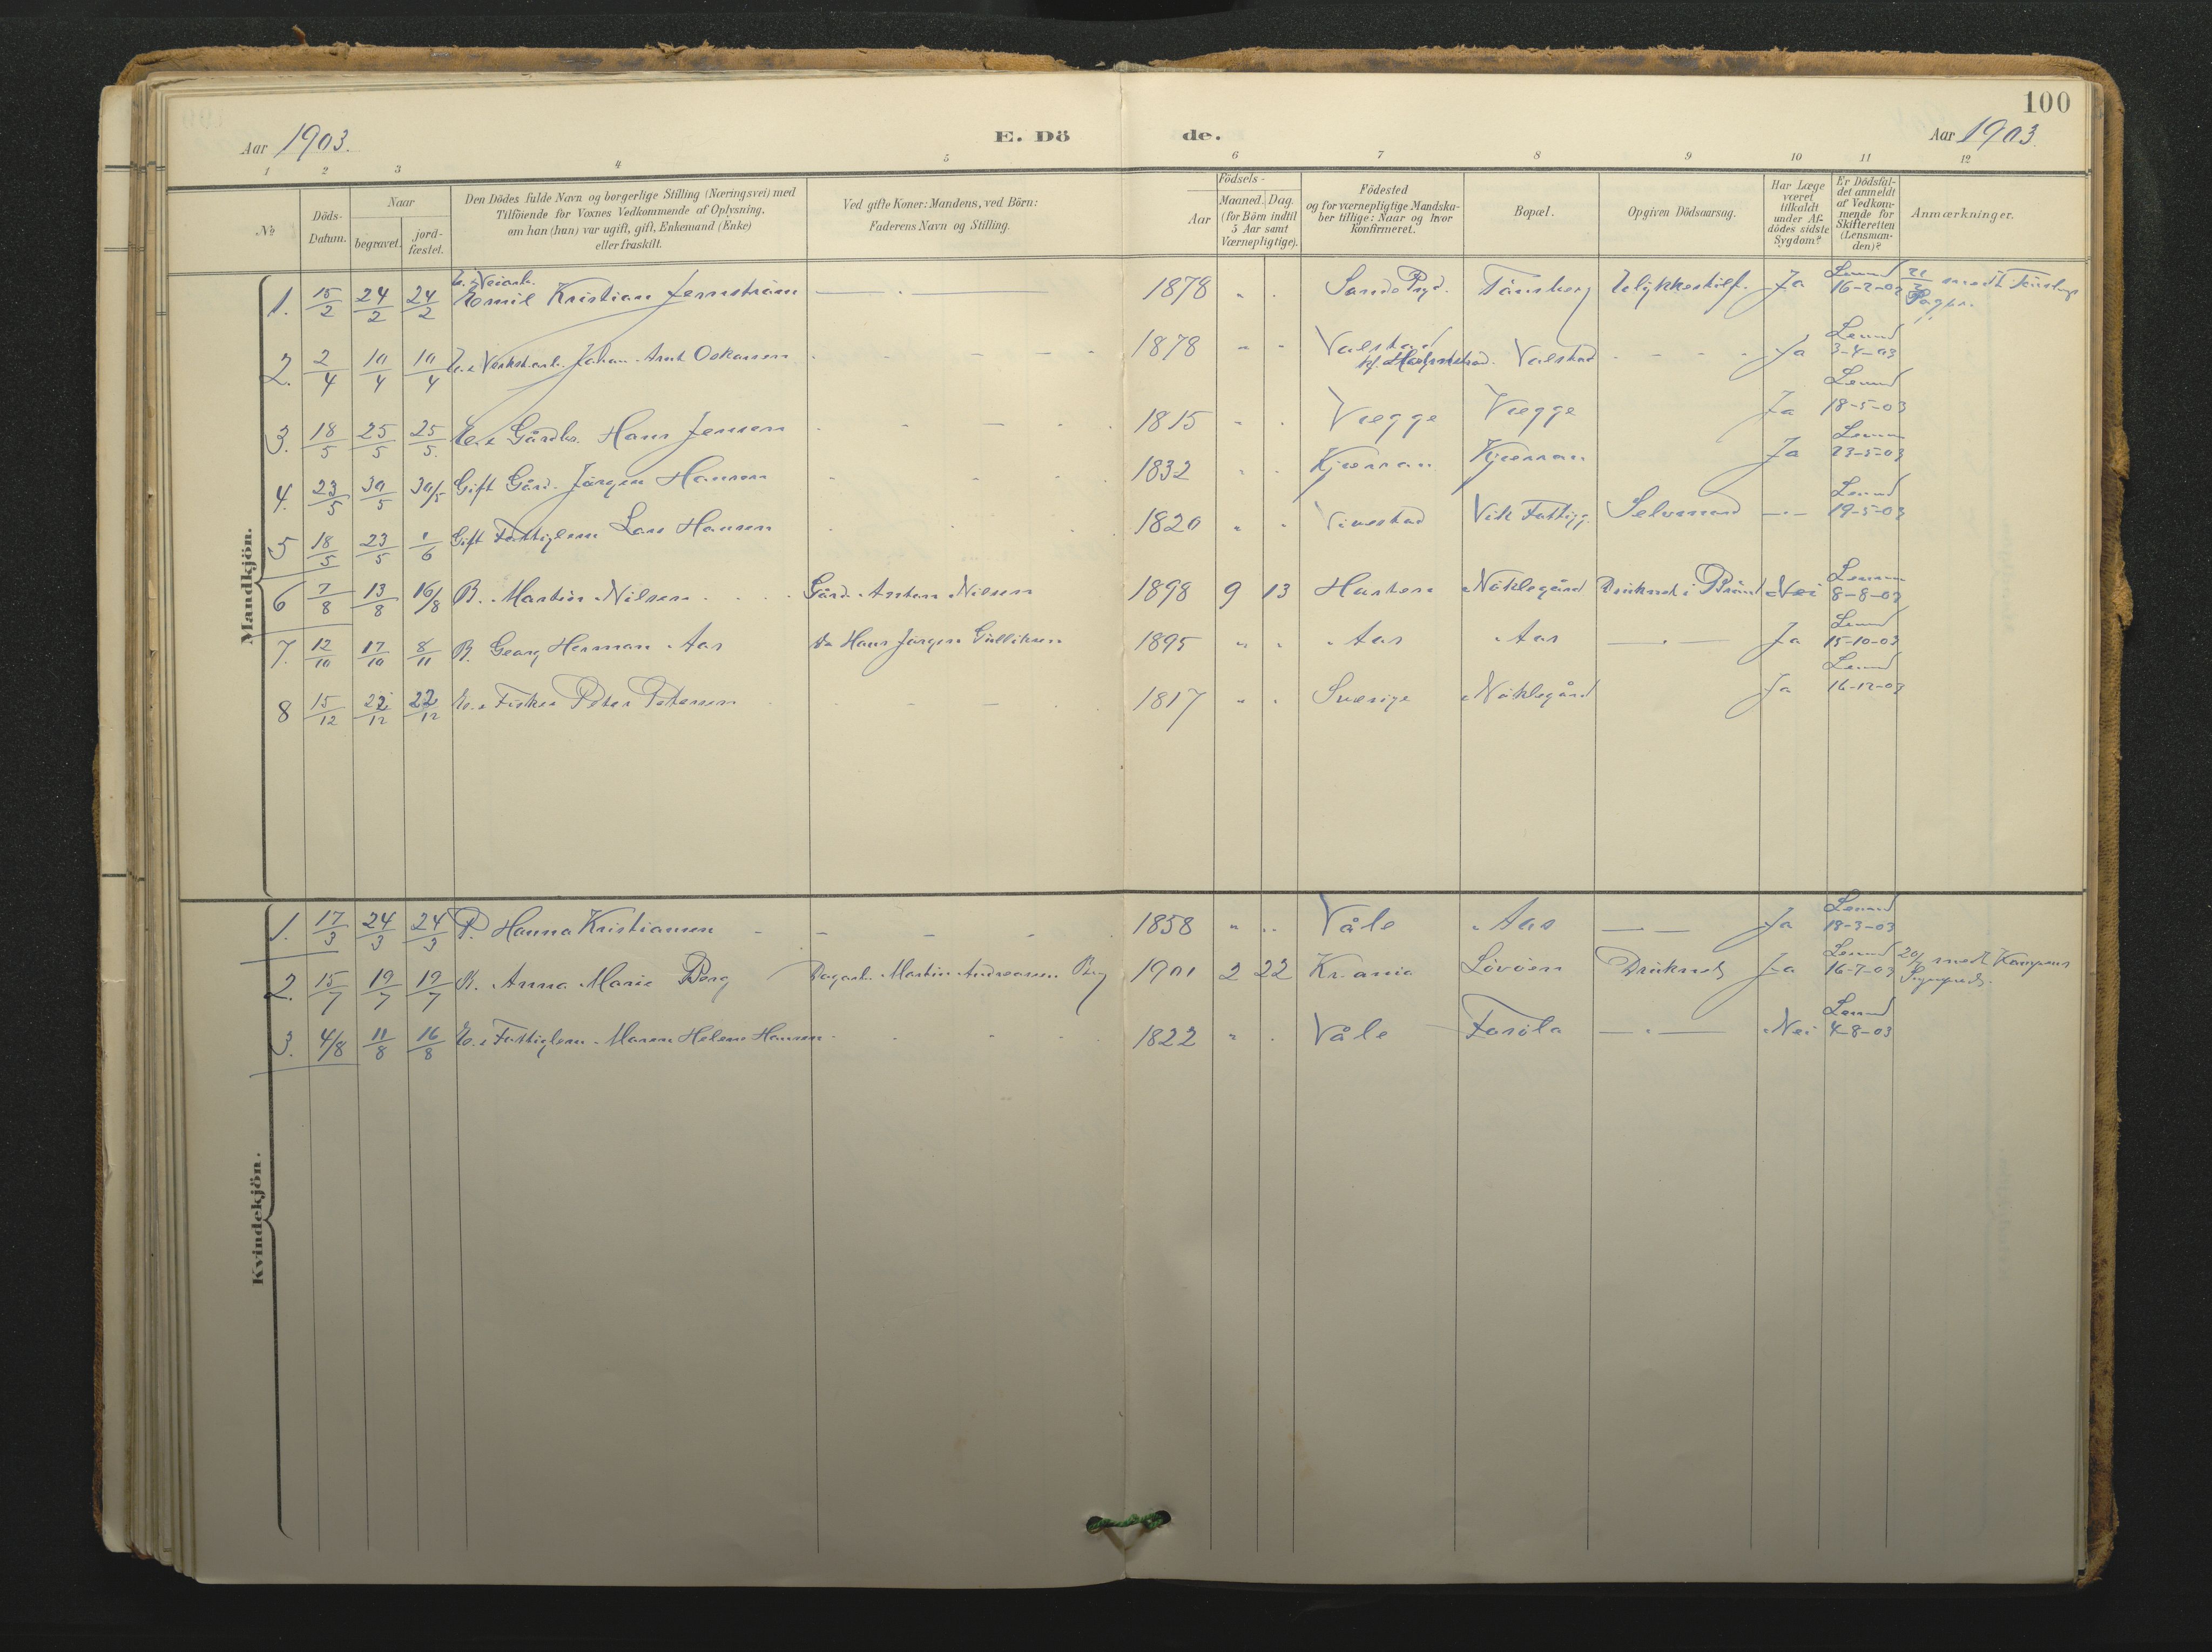 100
Aar 1903.
E. Dö de.
Aar 1903
1 2 3 4 5 6 7 8 9 10 11 12
№
Döds-Datum.
Naar
begravet.
jord-fæstet.
Den Dödes fulde Navn og borgerlige Stilling (Næringsvei) med
Tilföiende for Voxnes Vedkommende af Oplysning,
om han (hun) var ugift, gift, Enkemand (Enke)
eller fraskilt.
Ved gifte Koner: Mandens, ved Börn:
Faderens Navn og Stilling.
Födsels-
Aar
Maaned. Dag.
(for Börn indtil
5 Aar samt
Værnepligtige).
Födested
og for værnepligtige Mandska-
ber tillige: Naar og hvor
Konfirmeret.
Bopæl.
Opgiven Dödsaarsag.
Har Læge
været
tilkaldt
under Af-
dödes sidste
Sygdom?
Er Dödsfal-
det anmeldt
af Vedkom-
mende for
Skifteretten
(Lensman-
den)?
Anmærkninger.
Mandkjön.
1. 15/2 24/2 24/2 Emil Kristian Jernström — 1878 " . Sande Tönsberg Ulykkestilf. Ja Lensm 16-2-03
2. 2/4 10/4 10/4 Johan Arnt Oskarsen - - - - 1878 " " Valstad Valstad - - - Ja Lensm 3-4-03
3. 18/5 25/5 25/5 Gårdbr. Hans Jensen - - 1815 " . Vegge Vegge Ja Lensm 18-5-03
4. 23/5 30/5 30/5 Gift Gård. Jörgen Hansen - - 1832 " . Kjærran Kjærran Ja Lensm 23-5-03
5 18/5 23/5 1/6 Gift Fattiglem Lars Hansen 1820 " " Vivestad Vik Fattigg. Selvmord — Lensm 19-5-03
6 7/8 13/8 16/8 B. Martin Nilsen Gård. Anton Nilsen 1898 9 13 Nöklegård Druknet i Brönd Nei Lensm 8-8-03
7. 12/10 17/10 8/11 B. Georg Herman Aas Do Hans Jörgen Gulliksen 1895 " " Aas Aas — Ja Lensm 15-10-03
8 15/12 22/12 22/12 Fisker Peter Petersen - - - 1817 " " Sverige Nöklegård Ja Lensm 16-12-03
Kvindekjön.
1. 17/3 24/3 24/3 P. Hanna Kristiansen - - - - 1858 " " Våle Aas — Ja Lensm 18-3-03
2. 15/7 19/7 19/7 B. Anna Marie Berg Dagarb. Martin Andreassen Berg 1901 2 22 Kr.ania Lövöen Druknet Ja Lensm 16-7-03 20/7 medt Kampens Sognepræst.
3. 4/8 11/8 16/8 Fattiglem Maren Helene Hansen 1822 " . Våle — Nei Lensm 4-8-03